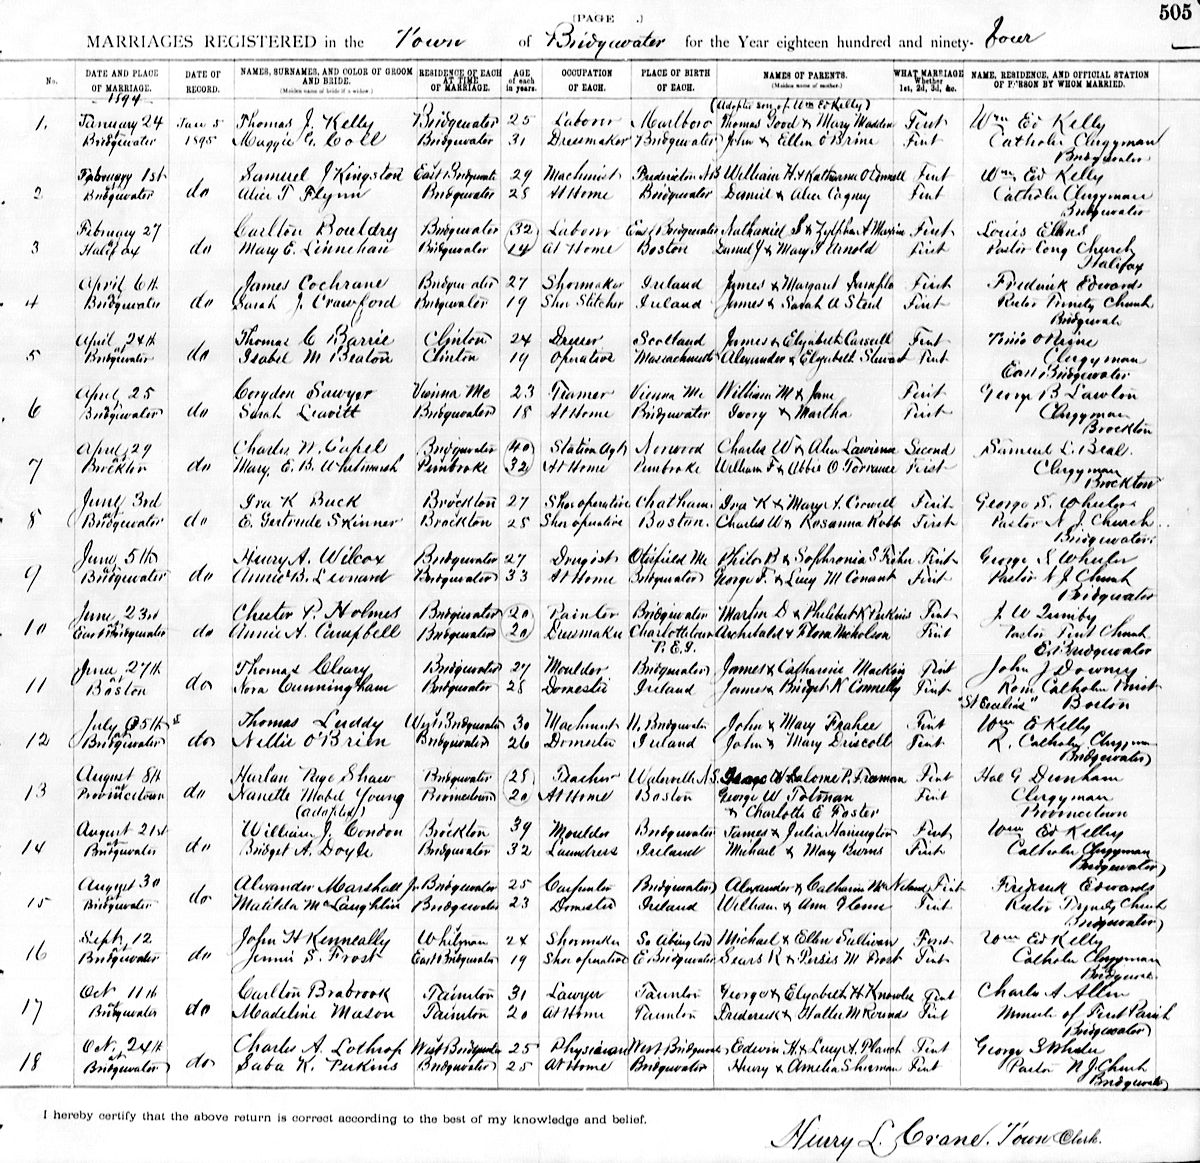 (PAGE .) 505
MARRIAGES REGISTERED in the Town of Bridgewater for the Year eighteen hundred and ninety-four
No. DATE AND PLACE OF MARRIAGE. DATE OF RECORD. NAMES, SURNAMES, AND COLOR OF GROOM AND BRIDE. (Maiden name of bride if a widow.) RESIDENCE OF EACH AT TIME OF MARRIAGE. AGE of each in years. OCCUPATION OF EACH. PLACE OF BIRTH OF EACH. NAMES OF PARENTS. (Maiden name of mother.) WHAT MARRIAGE Whether 1st, 2d, 3d, &c. NAME, RESIDENCE, AND OFFICIAL STATION OF PERSON BY WHOM MARRIED.
1894
(Adopted son of Wm Ed Kelly)
1. January 24 Jan 5 Thomas J. Kelly Bridgewater 25 Laborer Marlboro Thomas Good & Mary Madden First Wm Ed Kelly
at Bridgewater 1895 Maggie G. Coll Bridgewater 31 Dressmaker Bridgewater John & Ellen O'Brine First Catholic Clergyman
Bridgewater
February 1st Samuel J Kingston East Bridgewater 29 Machinist Fredericton N B William H & Katharine O'Connell First Wm Ed Kelly
2 Bridgewater do Alice T Flynn Bridgewater 28 At Home Bridgewater Daniel & Alice Cagney First Catholic Clergyman
Bridgewater
February 27 Carlton Bouldry Bridgewater 32 Laborer East Bridgewater Nathaniel S & Zylphia A First Louis Ellms
3 Halifax do Mary E. Linnehan Bridgewater 14 At Home Boston Daniel J & Mary F Arnold First Pastor Cong Church
Halifax
April 6th James Cochrane Bridgewater 27 Shoemaker Ireland James & Margaret First Fredrick Edwards
4 Bridgewater do Sarah J. Crawford Bridgewater 19 Shoe Stitcher Ireland James & Sarah A Steed First Rector Trinity Church
Bridgewater
April 24th Thomas C Barrie Clinton 24 Dresser Scotland James & Elizabeth First
5 at Bridgewater do Isabel M Beaton Clinton 19 Operative Massachusetts Alexander & Elizabeth Stewart First Clergyman
East Bridgewater
April 25 Corydon Sawyer Vienna Me 23 Farmer Vienna Me William M & Jane First George B Lawton
6 Bridgewater do Sarah Leavitt Bridgewater 18 At Home Bridgewater Ivory & Martha First Clergyman
Brockton
April 29 Charles N. Capel Bridgewater 40 Station Agt Norwood Charles W & Alice Lawrence Second Samuel L. Beal
7 at Brockton do Mary, E. B. Whitmarsh Pembroke 32 At Home Pembroke William F & Abbie O Torrence First Clergyman
Brockton
June 3rd Ira K Buck Brockton 27 Shoe operative Chatham. Ira K & Mary S. Crowell First George S. Wheeler
8 at Bridgewater do E. Gertrude Skinner Brockton 28 Shoe operative Boston. Charles W & Rosanna Robb First Pastor N. J. Church
Bridgewater
June 5th Henry A. Wilcox Bridgewater 27 Drugist Otisfield Me Philos B & Sophronia S Fisher First George S Wheeler
9 at Bridgewater do Annie B. Leonard Bridgewater 33 At Home Bridgewater George F. & Lucy M Conant First Pastor N J Church
Bridgewater
June 23rd Chester P. Holmes Bridgewater 20 Painter Bridgewater Martin D & Philebert K Perkins First J. W Quimby
10 East Bridgewater do Annie A. Campbell Bridgewater 20 Dressmaker Charlottetown Archibald & Flora Nicholson First Pastor First Church
P. E. I. Ed Bridgewater
June 27th Thomas Cleary Bridgewater 27 Moulder Bridgewater James & Catharine Mackin First John J Downey
11 at Boston do Nora Cunningham Bridgewater 28 Domestic Ireland James & Bridget K Connelly First Rom Catholic Priest
"St Cecilia" Boston
July 5th Thomas Luddy West Bridgewater 30 Machinist N. Bridgewater John & Mary Frahee First Wm E Kelly
12 at Bridgewater do Nellie O'Brien Bridgewater 26 Domestic Ireland John & Mary Driscoll First R. Catholic Clergyman
Bridgewater
August 8th Harlan Page Shaw Bridgewater 28 Teacher Waterville N.S. Isaac W & Salome P. Freeman First Hal G Dunham
13 Provincetown do Nanette Mabel Young Provincetown 20 At Home Boston George W Totman First Clergyman
(adopted) & Charlotte E Foster Provincetown
August 21st William J. Condon Brockton 39 Moulder Bridgewater James & Julia Harrington First Wm Ed Kelly
14 at Bridgewater do Bridget A. Doyle Bridgewater 32 Laundress Ireland Michael & Mary Burns First Catholic Clergyman
Bridgewater
August 30 Alexander Marshall Jr Bridgewater 25 Carpenter Bridgewater Alexander & Catharine McNeland First Fredrick Edwards
15 Bridgewater do Matilda McLaughlin Bridgewater 23 Domestic Ireland William & Ann Glenn First Rector Trinity Church
Bridgewater
Sept, 12 John H Kenneally Whitman 24 Shoemaker So Abington Michael & Ellen Sullivan First Wm Ed Kelly
16 at Bridgewater do Jennie S. Frost East Bridgewater 19 Shoe operative E Bridgewater Sears R & Persis M Frost First Catholic Clergyman
Bridgewater
Oct 11th Carlton Brabrook Taunton 31 Lawyer Taunton George & Elizabeth H Knowles First Charles A Allen
17 at Bridgewater do Madeline Mason Taunton 20 At Home Taunton Frederick & Hattie M Rounds First Minister of First Parish
Bridgewater
Oct. 24th Charles A. Lothrop West Bridgewater 25 Physician West Bridgewater Edwin H. & Lucy A. First George S Wheeler
18 at Bridgewater do Saba K. Perkins Bridgewater 25 At Home Bridgewater Henry & Amelia Sherman First Pastor N J. Church
Bridgewater
I hereby certify that the above return is correct according to the best of my knowledge and belief.
Henry L. Crane. Town Clerk.